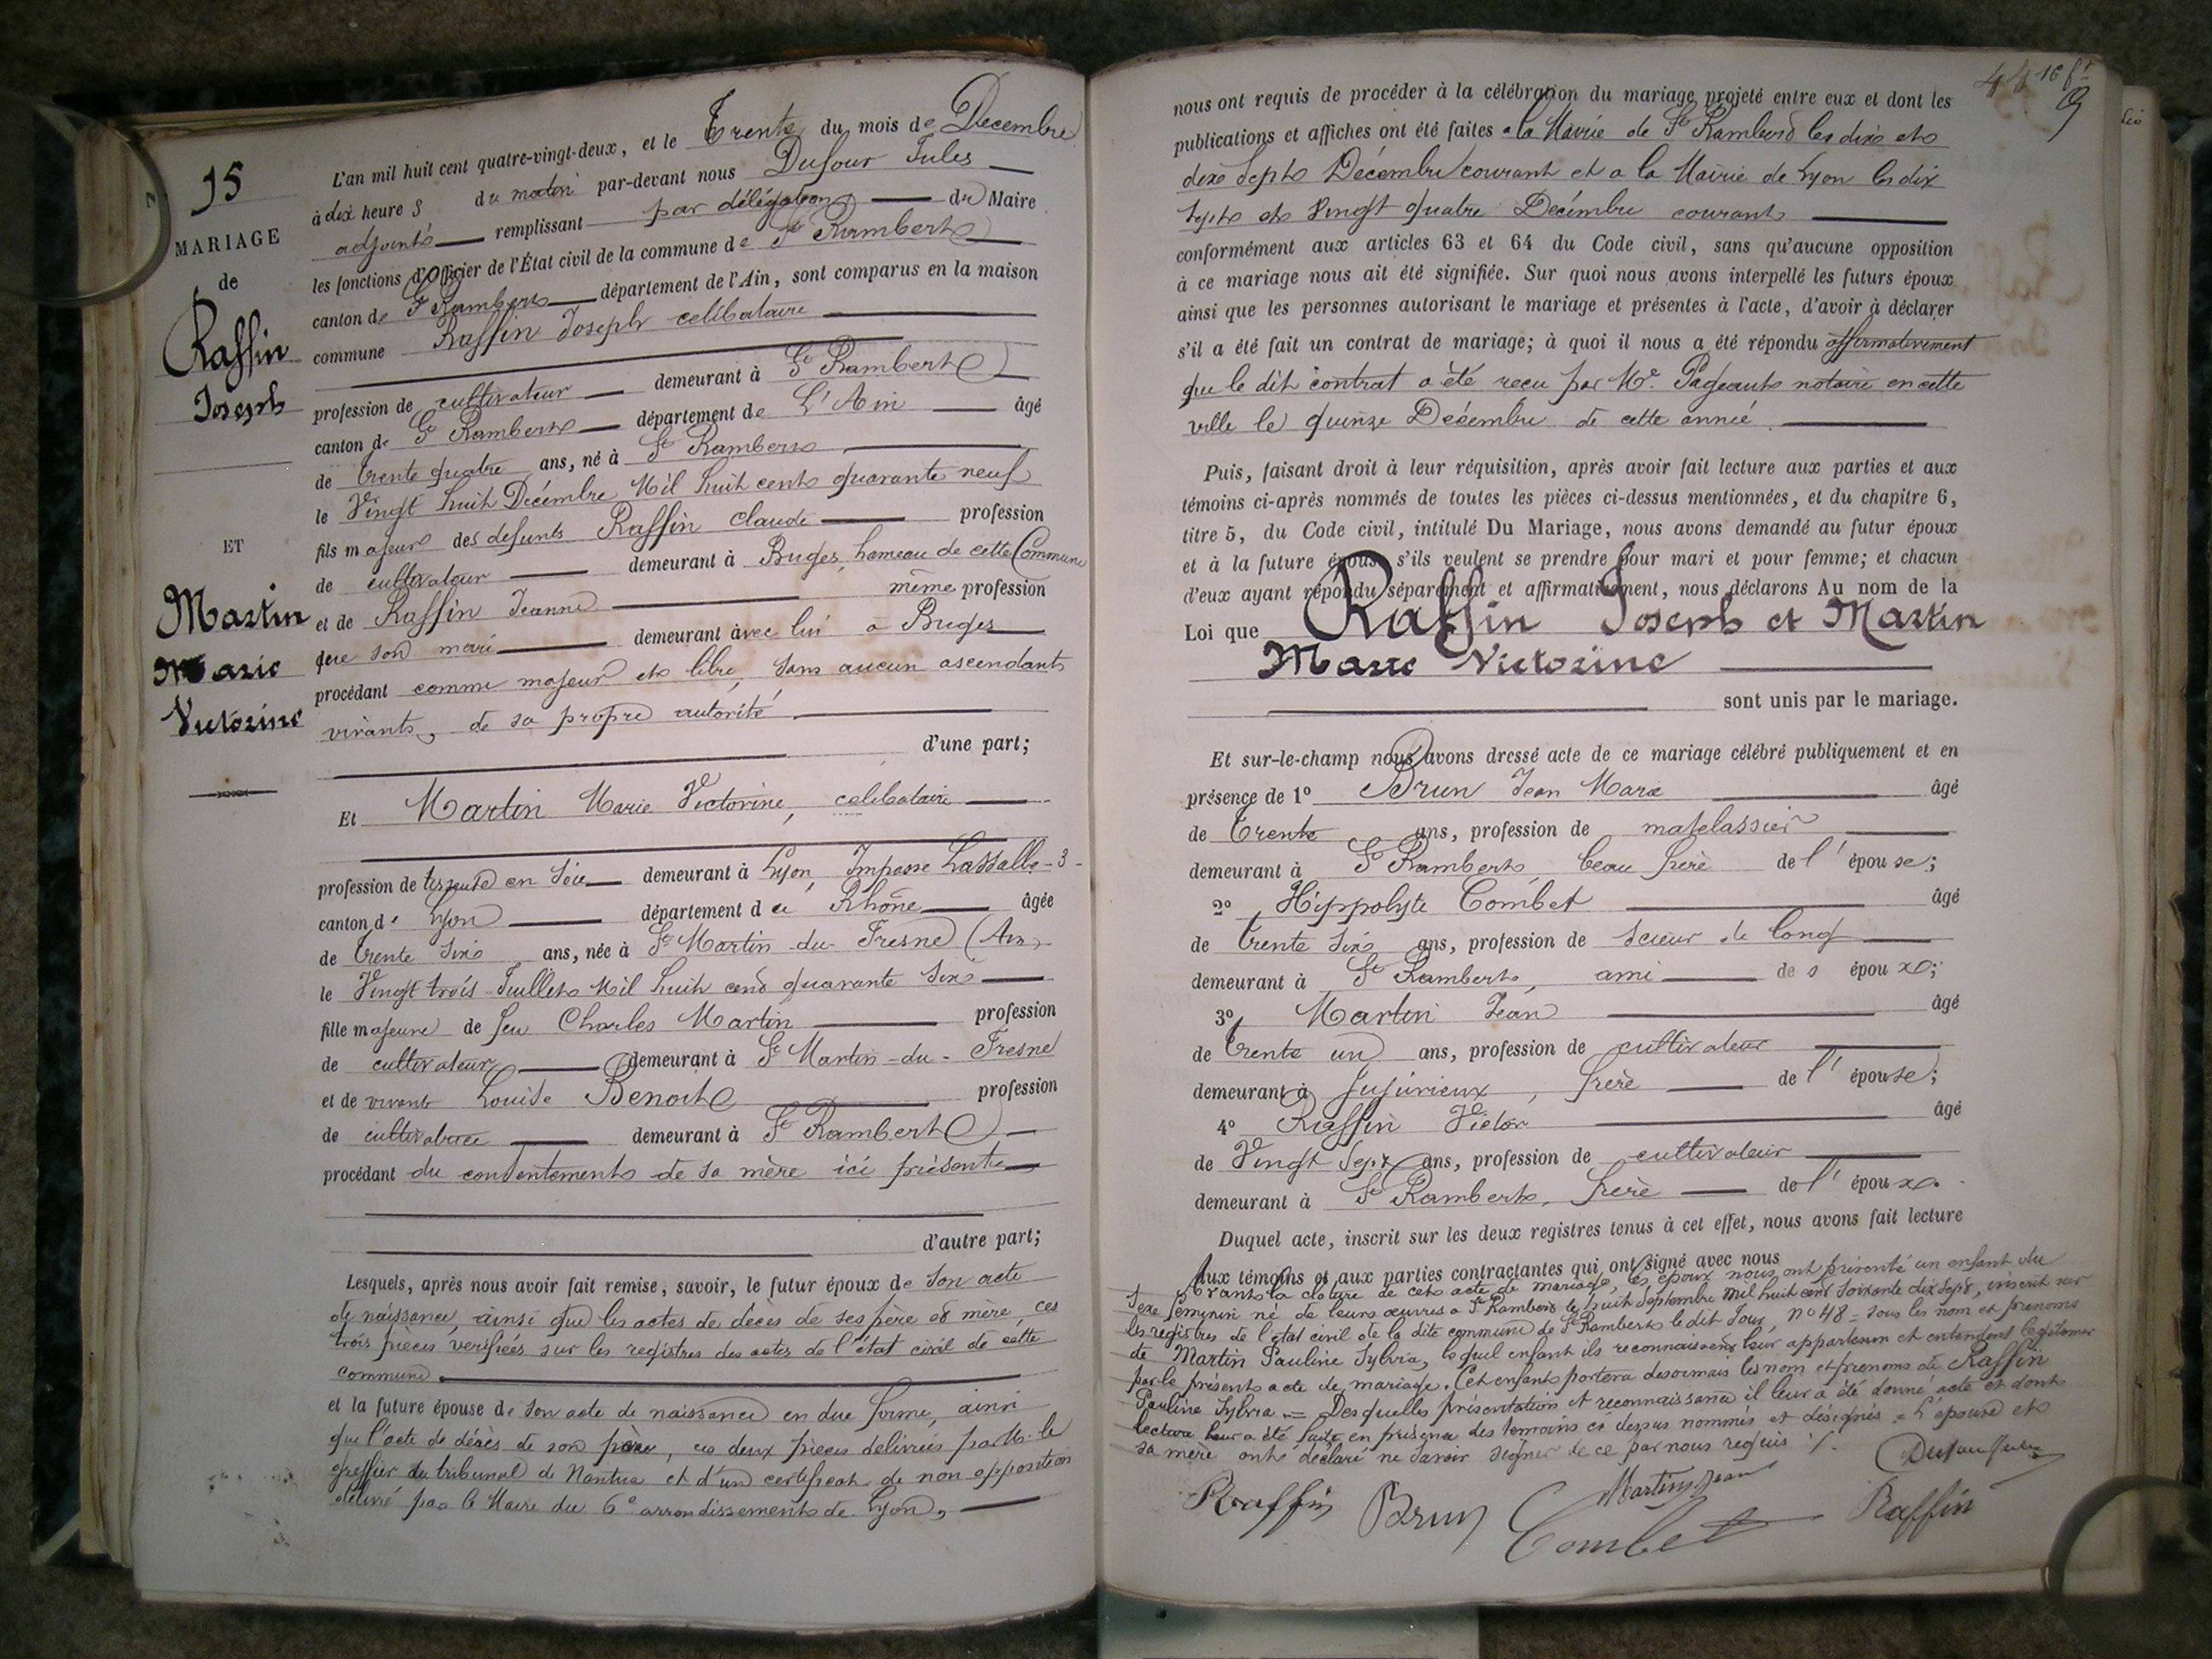 15
MARIAGE
de
Raffin
Joseph
ET
Martin
Marie
Victorine
L'an mil huit cent quatre-vingt-deux, et le Trente du mois de Decembre
à dix heures du matin par-devant nous Dufour Jules
adjoint remplissant par délégation du Maire
les fonctions d'Officier de l'État civil de la commune de St Rambert
canton de St Rambert département de l'Ain, sont comparus en la maison
commune Raffin Joseph celibataire
profession de cultivateur demeurant à St Rambert
canton de St Rambert département de L'Ain âgé
de trente quatre ans, né à St Rambert
le Vingt huit Décembre Mil huit cent quarante neuf
fils majeur des defunts Raffin Claude profession
de cultivateur demeurant à Buges, hameau de cette Commune
et de Raffin Jeanne même profession
que son mari demeurant avec lui à Buges
procédant comme majeur et libre, sans aucun ascendants
vivants, de sa propre autorité
d'une part;
Et Martin Marie Victorine, celibataire
profession de tisseuse en soie demeurant à Lyon, Impasse Lassalle - 3 -
canton de Lyon département du Rhône âgée
de trente six ans, née à St Martin-du-Fresne (Ain)
le Vingt trois Juillet Mil huit cent quarante six
fille majeure de feu Charles Martin profession
de cultivateur demeurant à St Martin-du-Fresne
et de vivante Louise Benoit profession
de cultivatrice demeurant à St Rambert
procédant du consentement de sa mère ici présente
d'autre part;
Lesquels, après nous avoir fait remise, savoir, le futur époux de son acte
de naissance, ainsi que les actes de décès de ses père et mère, ces
trois pièces verifiées sur les registres des actes de l'état civil de cette
commune
et la future épouse de son acte de naissance en due forme, ainsi
que l'acte de décès de son père, ces deux pièces delivrées par Mr le
greffier du tribunal de Nantua et d'un certificat de non opposition
délivré par le Maire du 6e arrondissement de Lyon,
44 16 ft
nous ont requis de procéder à la célébration du mariage projeté entre eux et dont les
publications et affiches ont été faites a la Mairie de St Rambert les dix et
dix sept Décembre courant et a la Mairie de Lyon les dix
sept et Vingt quatre Décembre courant
conformément aux articles 63 et 64 du Code civil, sans qu'aucune opposition
à ce mariage nous ait été signifiée. Sur quoi nous avons interpellé les futurs époux
ainsi que les personnes autorisant le mariage et présentes à l'acte, d'avoir à déclarer
s'il a été fait un contrat de mariage; à quoi il nous a été répondu affirmativement
que le dit contrat a été reçu par Me Pageaut notaire en cette
ville le quinze Décembre de cette année
Puis, faisant droit à leur réquisition, après avoir fait lecture aux parties et aux
témoins ci-après nommés de toutes les pièces ci-dessus mentionnées, et du chapitre 6,
titre 5, du Code civil, intitulé Du Mariage, nous avons demandé au futur époux
et à la future épouse s'ils veulent se prendre pour mari et pour femme; et chacun
d'eux ayant répondu séparément et affirmativement, nous déclarons Au nom de la
Loi que Raffin Joseph et Martin
Marie Victorine
sont unis par le mariage.
Et sur-le-champ nous avons dressé acte de ce mariage célébré publiquement et en
présence de 1º Brun Jean Marie âgé
de trente ans, profession de matelassier
demeurant à St Rambert, beau frère de l'épouse;
2º Hippolyte Combet âgé
de trente six ans, profession de scieur de long
demeurant à St Rambert, ami des époux;
3º Martin Jean âgé
de trente un ans, profession de cultivateur
demeurant à Jujurieux, frère de l'épouse;
4º Raffin Victor âgé
de Vingt sept ans, profession de cultivateur
demeurant à St Rambert, frère de l'époux.
Duquel acte, inscrit sur les deux registres tenus à cet effet, nous avons fait lecture
aux témoins et aux parties contractantes qui ont signé avec nous
Avant la clôture de cet acte de mariage, les époux nous ont présenté un enfant du
sexe feminin né de leurs œuvres a St Rambert le huit Septembre mil huit cent soixante dix sept, inscrit sur
les registres de l'état civil de la dite commune de St Rambert le dit jour, nº 48 = sous les nom et prenoms
de Martin Pauline Sylvia, lequel enfant ils reconnaissent leur appartenir et entendent legitimer
par le présent acte de mariage. Cet enfant portera desormais les nom et prenoms de Raffin
Pauline Sylvia = Desquelles présentation et reconnaissance il leur a été donné acte et dont
lecture leur a été faite en présence des temoins ci dessus nommés et désignés = L'épouse et
sa mère ont déclaré ne savoir signer de ce par nous requis ./.
Dufour Jules
Martin Jean
Raffin Brun Combet Raffin